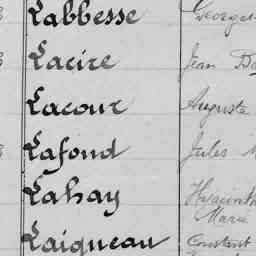 Labbesse George
Lacire Jean Ba
Lacour Auguste
Lafond Jules M
Lahay Hyacinth
Marie
Laigneau Constant